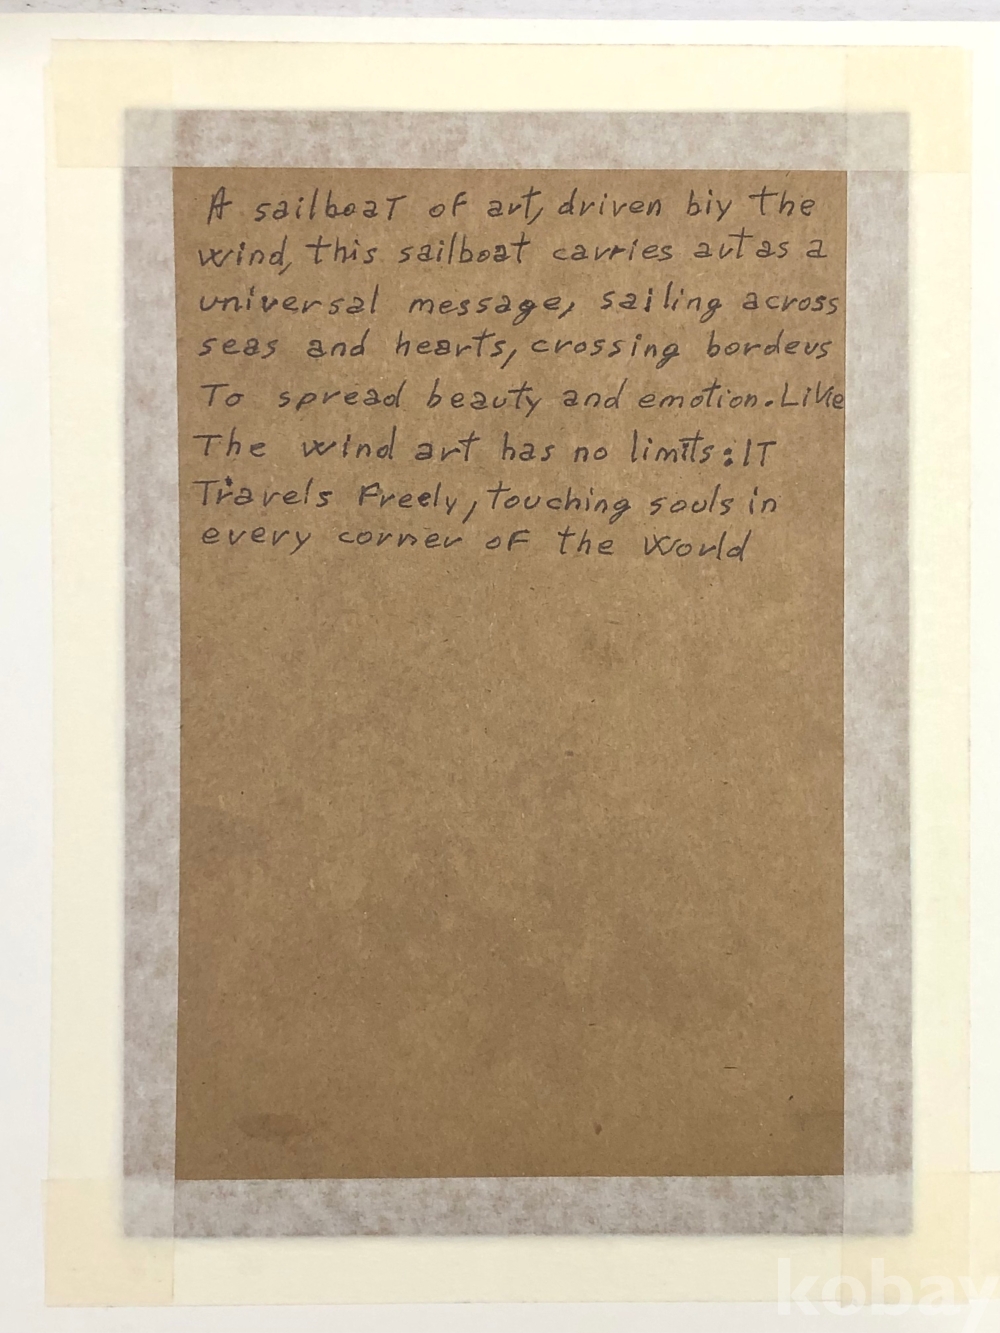 A sailboaT oF art, driven biy the
wind, this sailboat carries art as a
universal message, sailing across
seas and hearts, crossing borders
To spread beauty and emotion. LiKe
The wind art has no limits: IT
Travels Freely, touching souls in
every corner oF the World
kobay